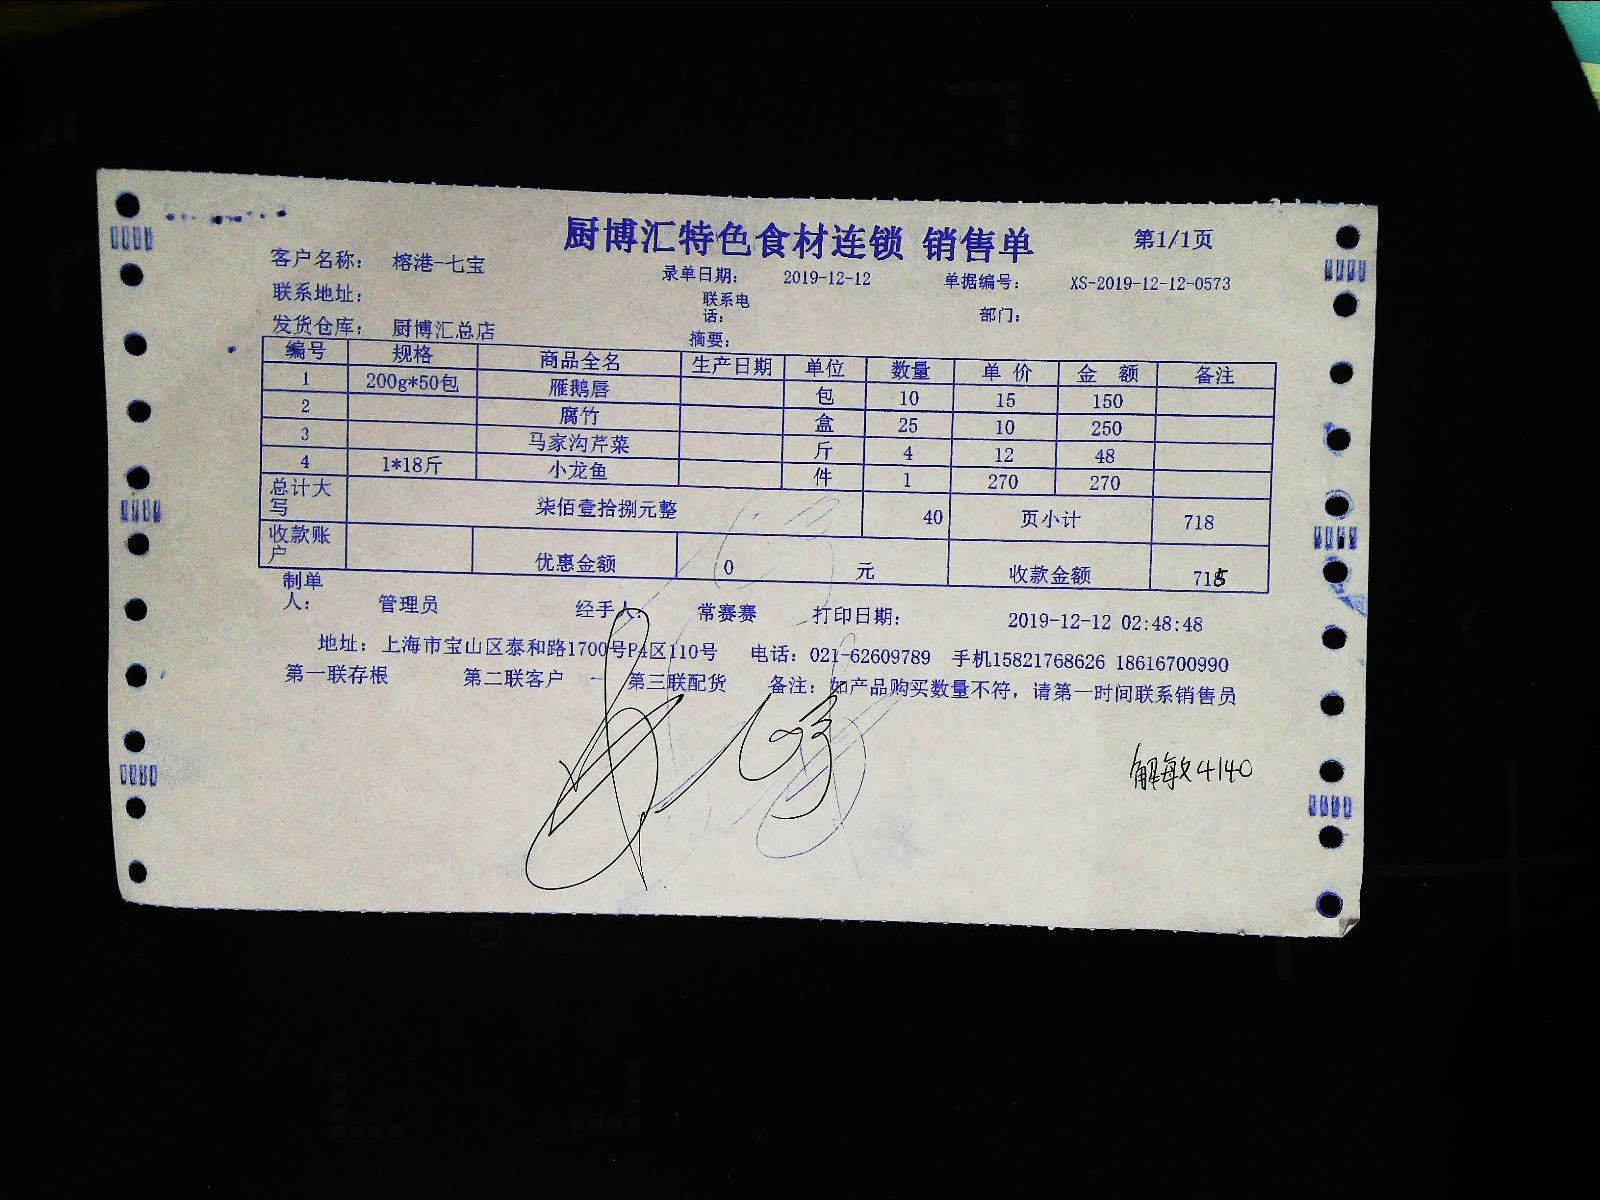 厨博汇特色食材连锁 销售单 第1/1页
客户名称: 榕港-七宝 录单日期: 2019-12-12 单据编号: XS-2019-12-12-0573
联系地址: 联系电话: 部门:
发货仓库: 厨博汇总店 摘要:
编号 规格 商品全名 生产日期 单位 数量 单价 金额 备注
1 200g*50包 雁鹅唇 包 10 15 150
2 腐竹 盒 25 10 250
3 马家沟芹菜 斤 4 12 48
4 1*18斤 小龙鱼 件 1 270 270
总计大写 柒佰壹拾捌元整 40 页小计 718
收款账户 优惠金额 0 元 收款金额
制单人: 管理员 经手人: 常赛赛 打印日期: 2019-12-12 02:48:48
地址: 上海市宝山区泰和路1700号P4区110号 电话: 021-62609789 手机15821768626 18616700990
第一联存根 第二联客户 第三联配货 备注: 如产品购买数量不符, 请第一时间联系销售员
解敏4140